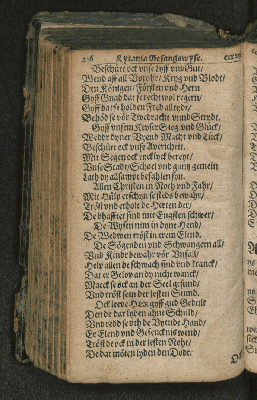 Beschütt ock vnse Lyff vnd Gut/
Wend aff all Vprohr/ Kryg vnd Blodt/
Den Köntgen/ Försten vnd Hern
Gyff Gnad dat se recht wol regern/
Gyff dat se holden Fred all tydt/
Behöd se vör Twedracht vnnd Strydt,
Gyff vnsem Keyser Sieg vnd Glück/
Wedder dyner Vyend Macht vnd Tück/
Beschütt ock vnse Avericheit.
Mit Segen ock
Vnse Stadt/ School vnd gantz gemein
Lath dy allsampt befahlen syn.
Allen Christen in Noth vnd Fahr/
Mit Hülp erschyn se stedes bewahr/
Tröst vnd erholde de Herten der/
De behafftet sind mit Engsten schwer/
De Wysen nim in dyne Hend/
De Wedwen tröst in erem Elend.
De Sögenden vnd Schwangern all/
Vnd Kinde bewahr vör Vnfall/
Help allen de schwach sind vnd kranck/
Dat er Gelov an dy nicht wanck/
Maeck se ock an der Seel gesund/
Vnd tröst sem der lesten Stund.
Ock lewe Here gyff gud Gedult
Den de dar lyden ahne Schuld/
Vnd redd se vth de Vyende Hand/
Er Elend vnd Gefencknis wend/
Tröst de ock in der lesten Nohr/
De dar möten lyden den Dodt/